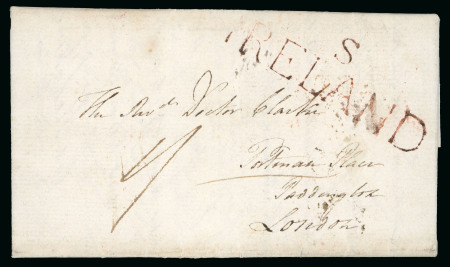 S
IRELAND
The Revd. Doctor Clarke
Portman Place
Paddington
London